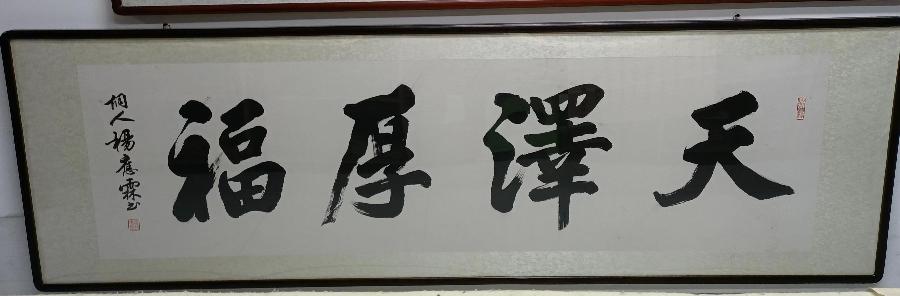 天澤厚福
桐人楊應霖书